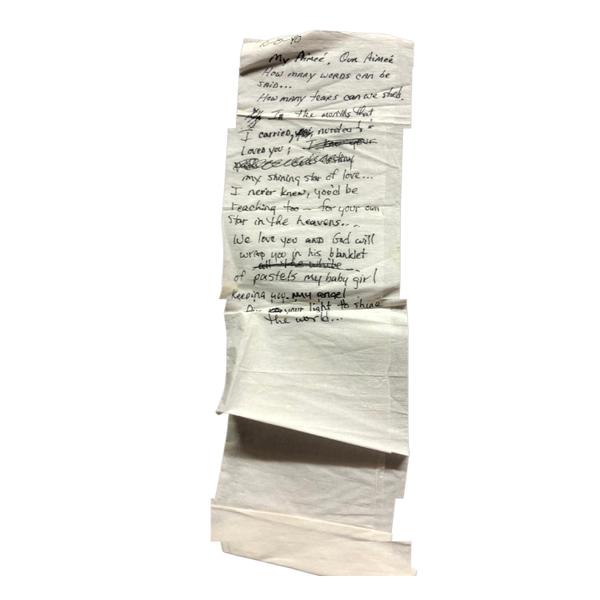 My Aimeé, Our Aimeé
How many words can be
said...
How many tears can we shed.
In the months that
I carried, nursed! &
Loved you; I know your
my shining star of love...
I never knew, you'd be
reaching too — for your own
star in the heavens...
We love you and God will
wrap you in his blanklet
all the while
of pastels my baby girl
Keeping you. my angel
your light to shine
the world...